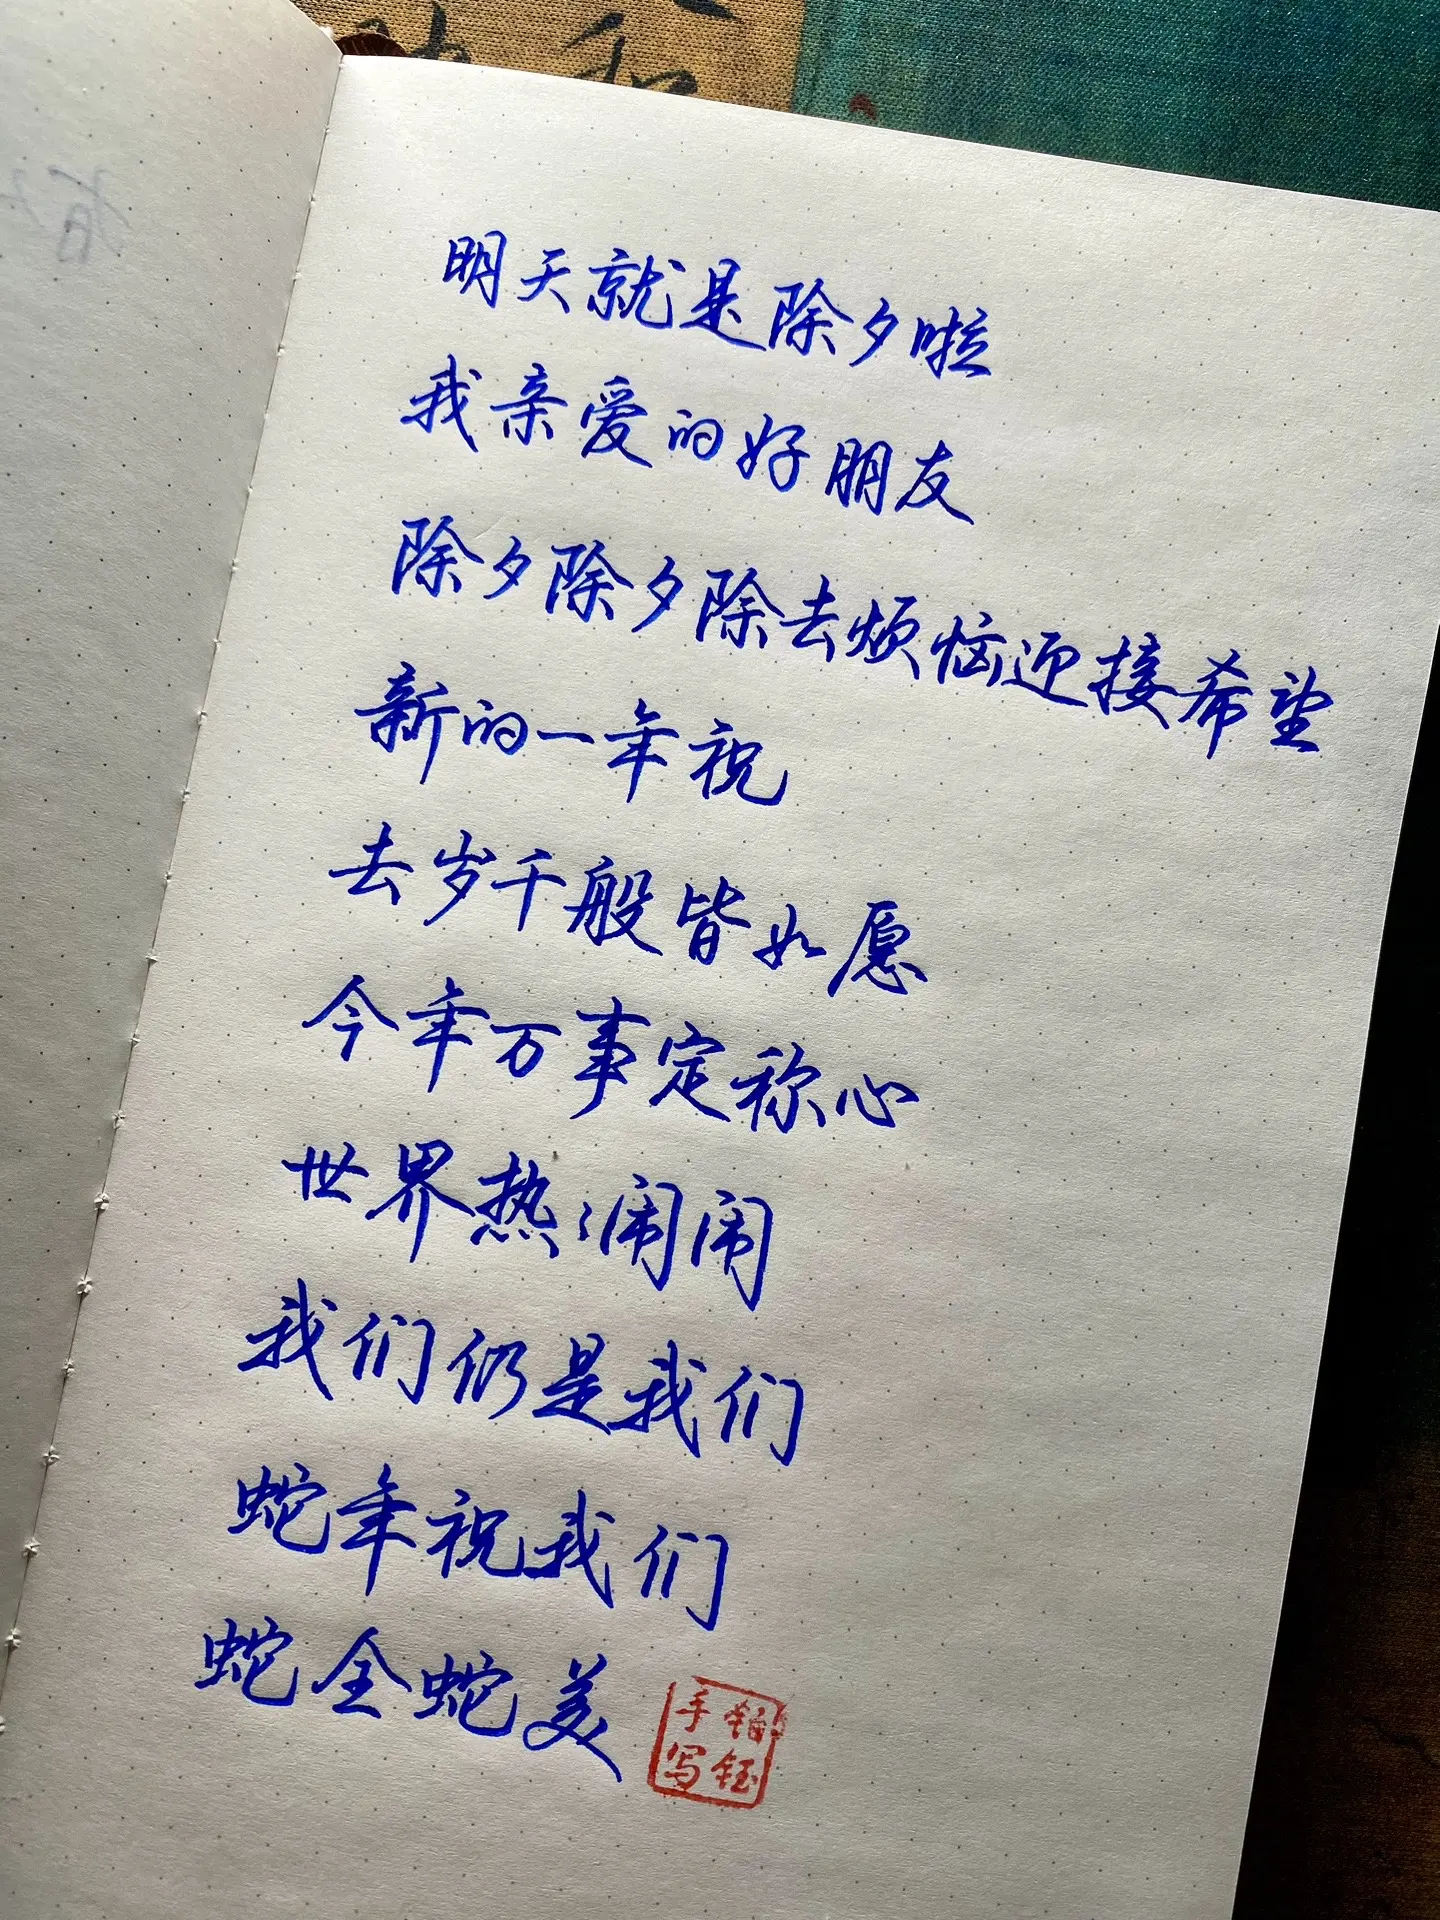 明天就是除夕啦
我亲爱的好朋友
除夕除夕除去烦恼迎接希望
新的一年祝
去岁千般皆如愿
今年万事定称心
世界热闹闹
我们仍是我们
蛇年祝我们
蛇全蛇美
手写
钰